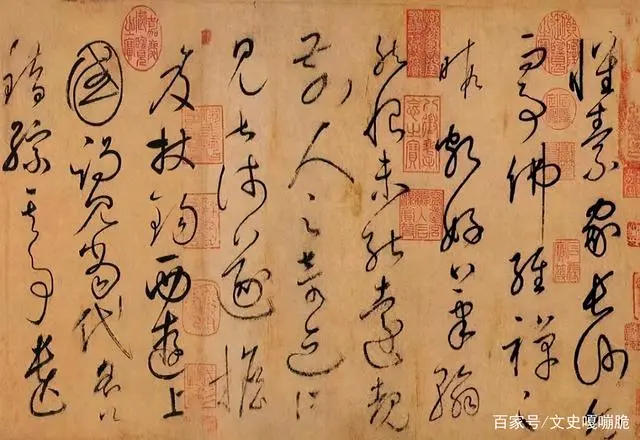 懷素家長沙幼
而事佛經禪之
暇頗好筆翰
然恨未能遠覩
前人之奇迹所
見甚淺遂擔
笈杖錫西遊上
國謁見當代名公
錯綜其事遺
百家号/文史嘎嘣脆